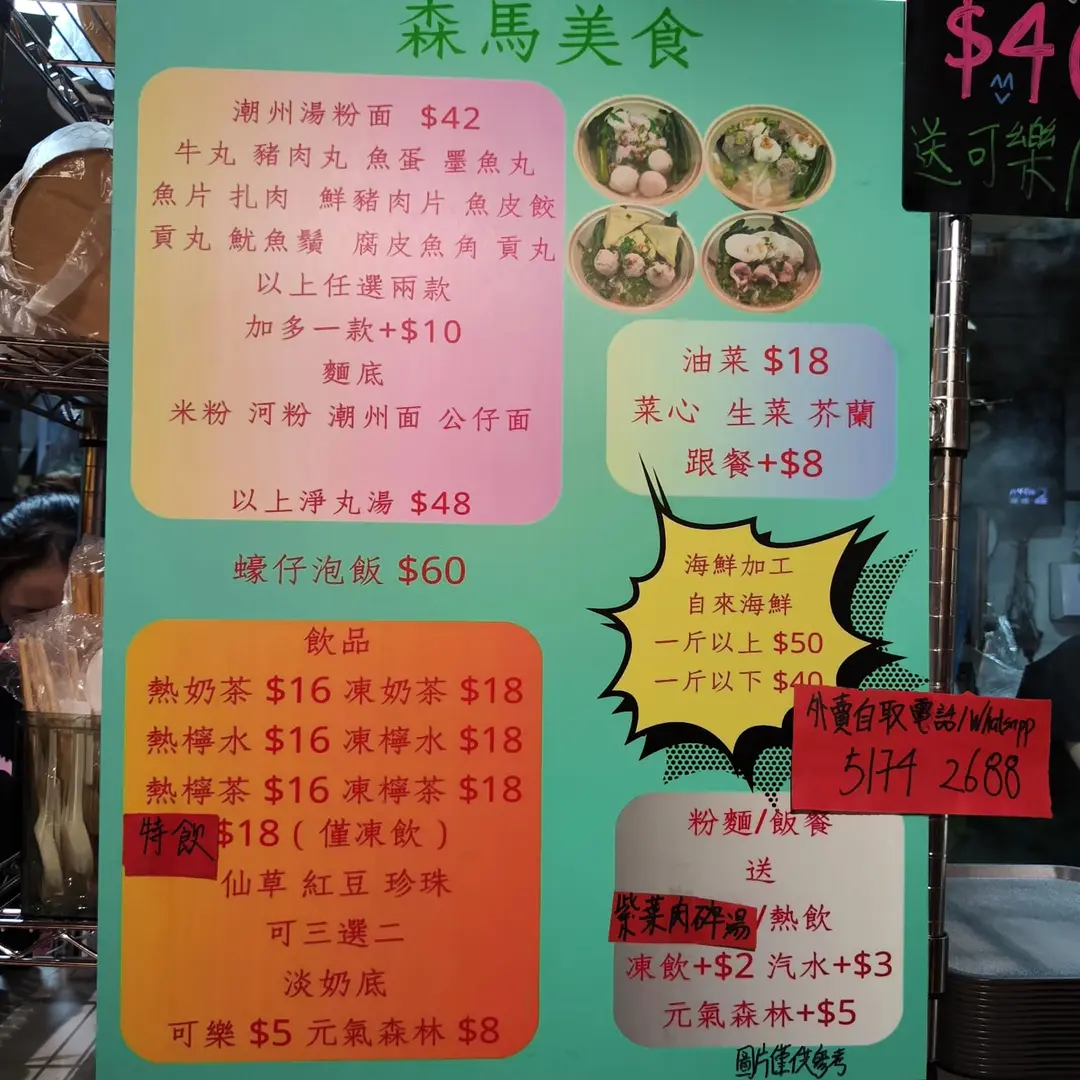 森馬美食
潮州湯粉面 $42
牛丸 豬肉丸 魚蛋 墨魚丸
魚片 扎肉 鮮豬肉片 魚皮餃
貢丸 魷魚鬚 腐皮魚角 貢丸
以上任選兩款
加多一款+$10
麵底
米粉 河粉 潮州面 公仔面
以上淨丸湯 $48
蠔仔泡飯 $60
飲品
熱奶茶 $16 凍奶茶 $18
熱檸水 $16 凍檸水 $18
熱檸茶 $16 凍檸茶 $18
特飲 $18 ( 僅凍飲 )
仙草 紅豆 珍珠
可三選二
淡奶底
可樂 $5 元氣森林 $8
油菜 $18
菜心 生菜 芥蘭
跟餐+$8
海鮮加工
自來海鮮
一斤以上 $50
一斤以下 $40
外賣自取電話/Whatsapp
5174 2688
粉麵/飯餐
送
紫菜肉碎湯/熱飲
凍飲+$2 汽水+$3
元氣森林+$5
圖片僅供參考
送可樂